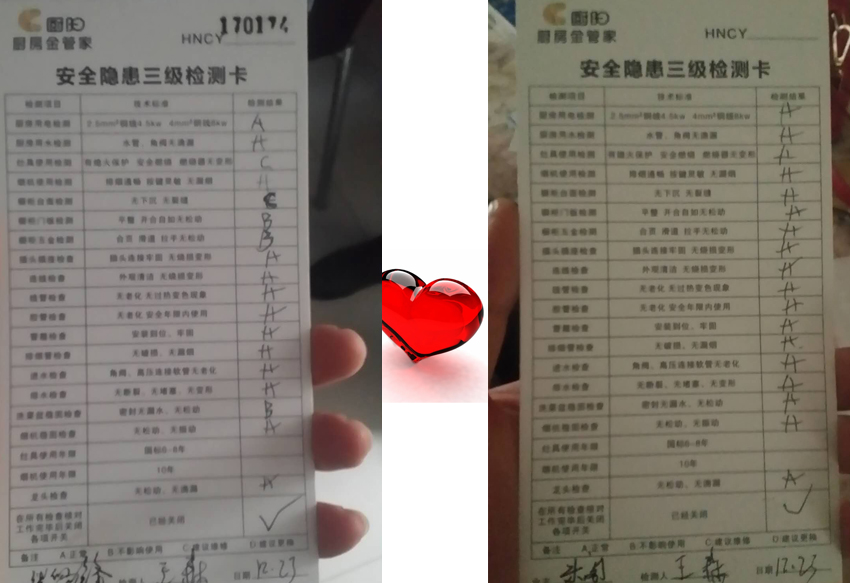 厨房金管家
HNCY 170174
安全隐患三级检测卡
检测项目 技术标准 检测结果
厨房用电检测 2.5mm²铜线4.5kw 4mm²铜线6kw A
厨房用水检测 水管、角阀无滴漏 A
灶具使用检测 有熄火保护 安全燃烧 燃烧器无变形 C
烟机使用检测 排烟通畅 按键灵敏 无漏烟 A
橱柜台面检测 无下沉 无裂缝 C
橱柜门板检测 平整 开合自如无松动 B
橱柜五金检测 合页 滑道 拉手无松动 B
插头插座检查 插头连接牢固 无烧损变形 A
连接检查 外观清洁 无烧损变形 A
线管检查 无老化 无过热变色现象 A
胶管检查 无老化 安全年限内使用 A
管箍检查 安装到位、牢固 A
排烟管检查 无破损、无漏烟 A
进水检查 角阀、高压连接软管无老化 A
排水检查 无断裂、无堵塞、无变形 A
洗菜盆稳固检查 密封无漏水、无松动 B
烟机稳固检查 无松动、无颤动 A
灶具使用年限 国标6-8年
烟机使用年限 10年
龙头检查 无松动、无滴漏 A
在所有检查核对 工作完毕后关闭 各项开关 已经关闭 ✓
备注 A正常 B不影响使用 C建议维修 D建议更换
检测人 王 日期 12.23
厨房金管家
HNCY
安全隐患三级检测卡
检测项目 技术标准 检测结果
厨房用电检测 2.5mm²铜线4.5kw 4mm²铜线6kw A
厨房用水检测 水管、角阀无滴漏 A
灶具使用检测 有熄火保护 安全燃烧 燃烧器无变形 A
烟机使用检测 排烟通畅 按键灵敏 无漏烟 A
橱柜台面检测 无下沉 无裂缝 A
橱柜门板检测 平整 开合自如无松动 A
橱柜五金检测 合页 滑道 拉手无松动 A
插头插座检查 插头连接牢固 无烧损变形 A
连接检查 外观清洁 无烧损变形 A
线管检查 无老化 无过热变色现象 A
胶管检查 无老化 安全年限内使用 A
管箍检查 安装到位、牢固 A
排烟管检查 无破损、无漏烟 A
进水检查 角阀、高压连接软管无老化 A
排水检查 无断裂、无堵塞、无变形 A
洗菜盆稳固检查 密封无漏水、无松动 A
烟机稳固检查 无松动、无颤动 A
灶具使用年限 国标6-8年
烟机使用年限 10年
龙头检查 无松动、无滴漏 A
在所有检查核对 工作完毕后关闭 各项开关 已经关闭 ✓
备注 A正常 B不影响使用 C建议维修 D建议更换
检测人 王 日期 12.23